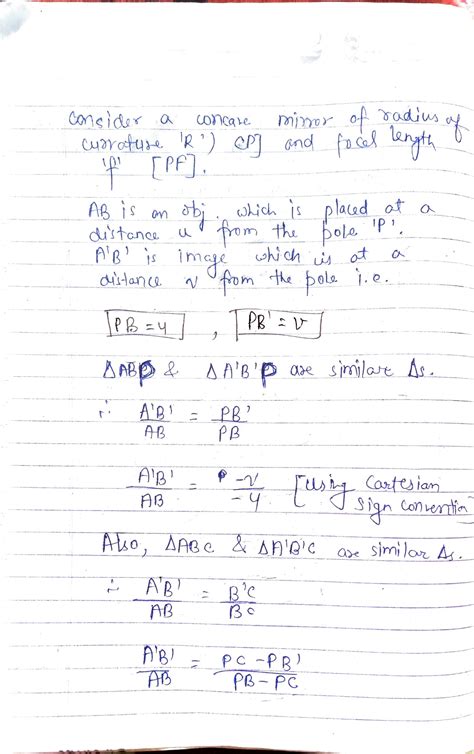 Consider a concave mirror of radius of
curvature 'R') CP] and focal length
'f' [PF].
AB is an obj. which is placed at a
distance u from the pole 'P'.
A'B' is image which is at a
distance v from the pole i.e.
PB = u , PB' = v
ΔABP & ΔA'B'P are similar Δs.
∴ A'B'/AB = PB'/PB
A'B'/AB = -v/-u [Using Cartesian
Sign convention
Also, ΔABC & ΔA'B'C are similar Δs.
∴ A'B'/AB = B'C/BC
A'B'/AB = PC - PB'/PB - PC